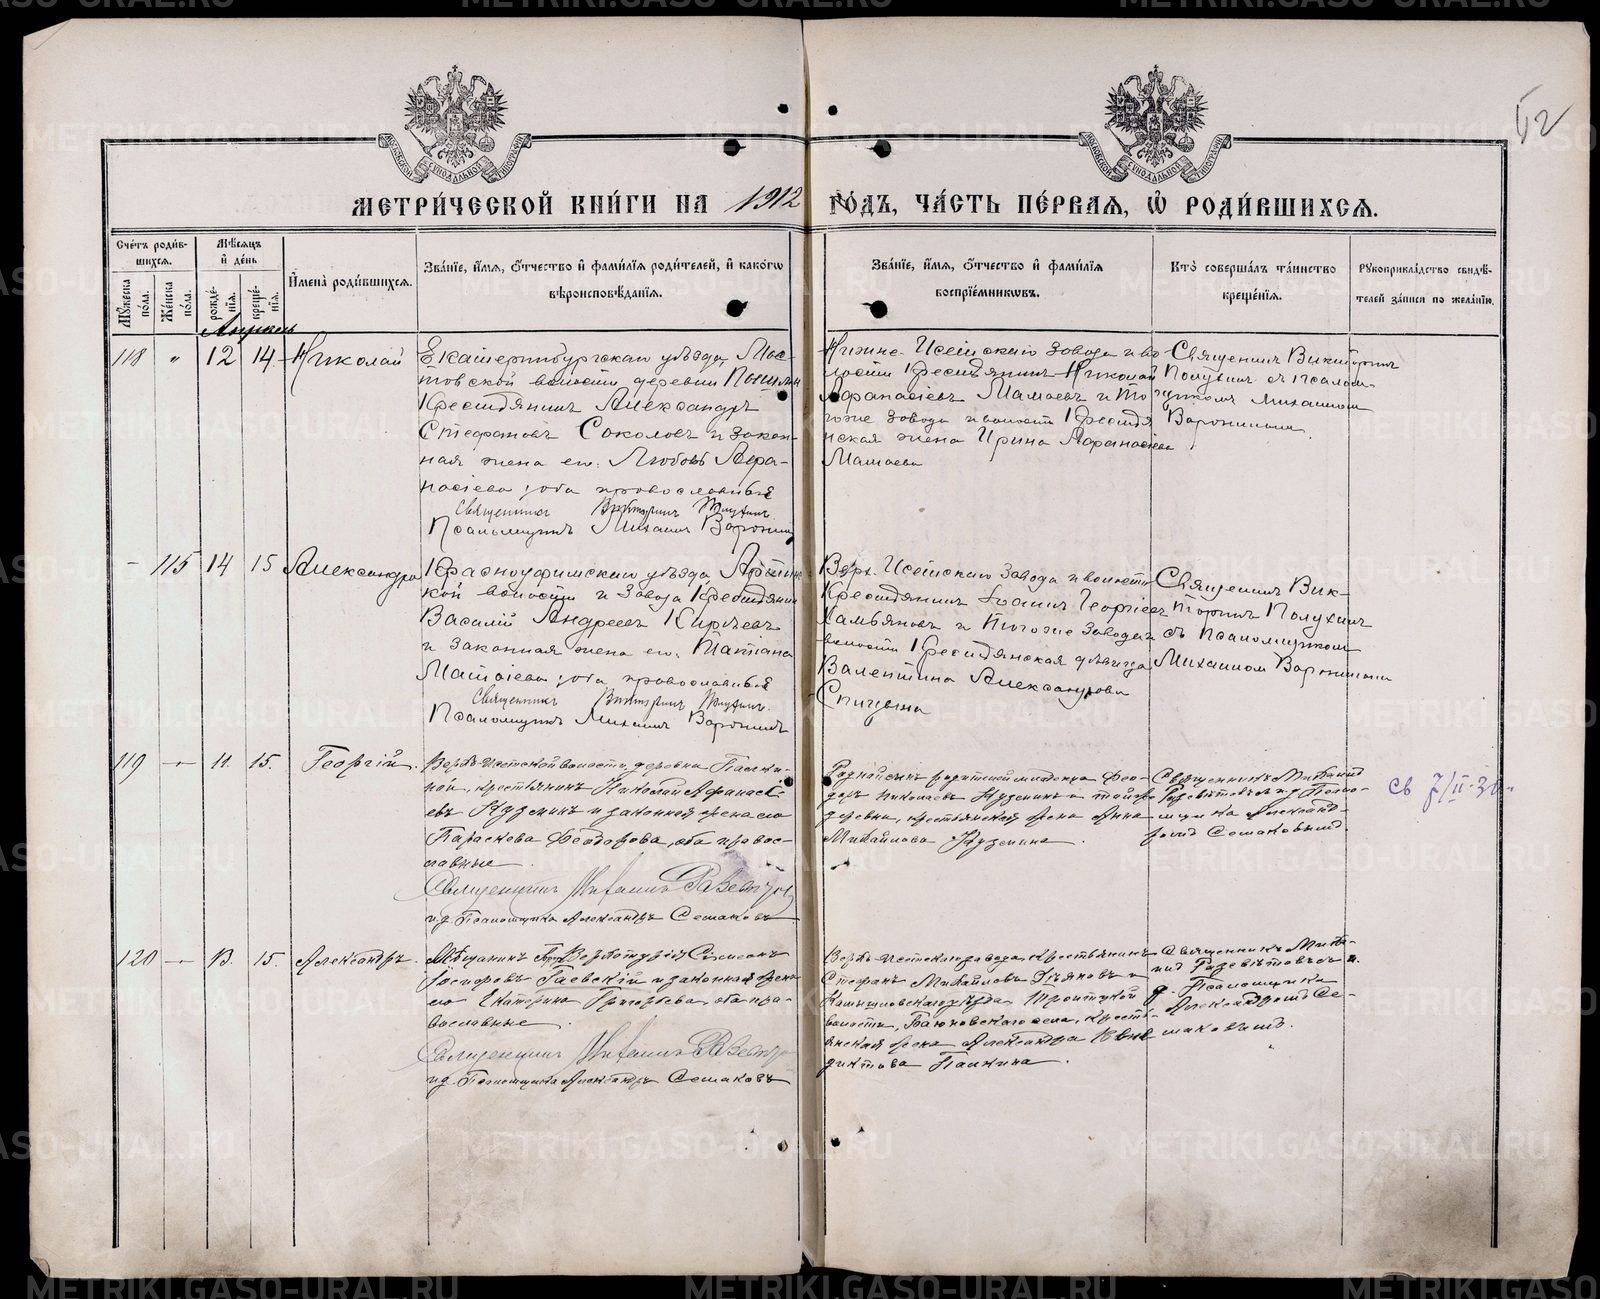 МЕТРИ́ЧЕСКОЙ КНИ́ГИ НА 1912 ГО́ДЪ, ЧА́СТЬ ПЕ́РВАЯ, Ѡ РОДИ́ВШИХСЯ.
Сче́тъ роди́в-
шихся.
Му́жеска
по́ла.
Же́нска
по́ла.
Мѣ́сяцъ
и де́нь
рожде́-
нїя.
креще́-
нїя.
И҆мена̀ роди́вшихся.
Зва́нїе, и҆́мя, ѻ҆́тчество и҆ фами́лїя роди́телей, и҆ како́гѡ
вѣроисповѣ́данїя.
Зва́нїе, и҆́мя, ѻ҆́тчество и҆ фами́лїя
воспрїе́мникѡвъ.
Кто̀ соверша́лъ та́инство
креще́нїя.
Рꙋкоприкла́дство свидѣ́-
телей за́писи по жела́нїю.
Апрель
118 " 12 14 Николай
Екатеринбургскаго уѣзда, Мос-
товской волости деревни
Крестьянинъ Александръ
Стефановъ Соколовъ и закон-
ная жена его Любовь Афа-
насіева, оба православные
Священникъ Викторинъ Полухинъ
Псаломщикъ Михаилъ Воронинъ
Нижне-Исетскаго завода и во-
лости Крестьянинъ Николай
Афанасіевъ Мамаевъ и то-
гоже завода и волости Крестья-
нская жена Ирина Афанасіева
Мамаева
Священникъ Викторинъ
Полухинъ съ псалом-
щикомъ Михаиломъ
Воронинымъ.
- 115 14 15 Александра
Красноуфимскаго уѣзда, Артинс-
кой волости и завода Крестьянинъ
Василій Андреевъ Кирѣевъ
и законная жена его Татіана
Матѳіева, оба православные
Священникъ Викторинъ Полухинъ
Псаломщикъ Михаилъ Воронинъ
Верх-Исетскаго завода и волости
Крестьянинъ Іоаннъ Георгіевъ
и тогоже завода и
волости Крестьянская дѣвица
Валентина Александрова
Спицына
Священникъ Вик-
торинъ Полухинъ
съ псаломщикомъ
Михаиломъ Воронинымъ
119 - 11. 15. Георгій.
Верхъ-Исетской волости, деревни Палки-
ной, крестьянинъ Николай Афанасі-
евъ Кузминъ и законная жена его
Параскева Феодорова, оба правос-
лавные.
Священникъ Михаилъ
и.д. Псаломщика Александръ Семаковъ
Родной сынъ родителей младенца Фео-
доръ Николаевъ Кузминъ и той же
деревни, крестьянская жена Анна
Михайлова Кузмина.
Священникъ Михаилъ
и.д. Псало-
мщика Александ-
ромъ Семаковымъ.
св 7/II-3
120 - 13. 15. Александръ.
Мѣщанинъ Верхотурскій Симеонъ
Іосифовъ Гаевскій и законная жена
его Екатерина Григорьева, оба пра-
вославные.
Священникъ Михаилъ
и.д. Псаломщика Александръ Семаковъ
Верхъ-Исетскаго завода, крестьянинъ
Стефанъ Михайловъ Дьяковъ и
Камышловскаго уѣзда, Троицкой
волости, села, кресть-
янская жена Александра Вене-
диктова Палкина.
Священникъ Миха-
илъ съ и.
д. Псаломщика
Александромъ Се-
маковымъ.
METRIKI.GASO-URAL.RU